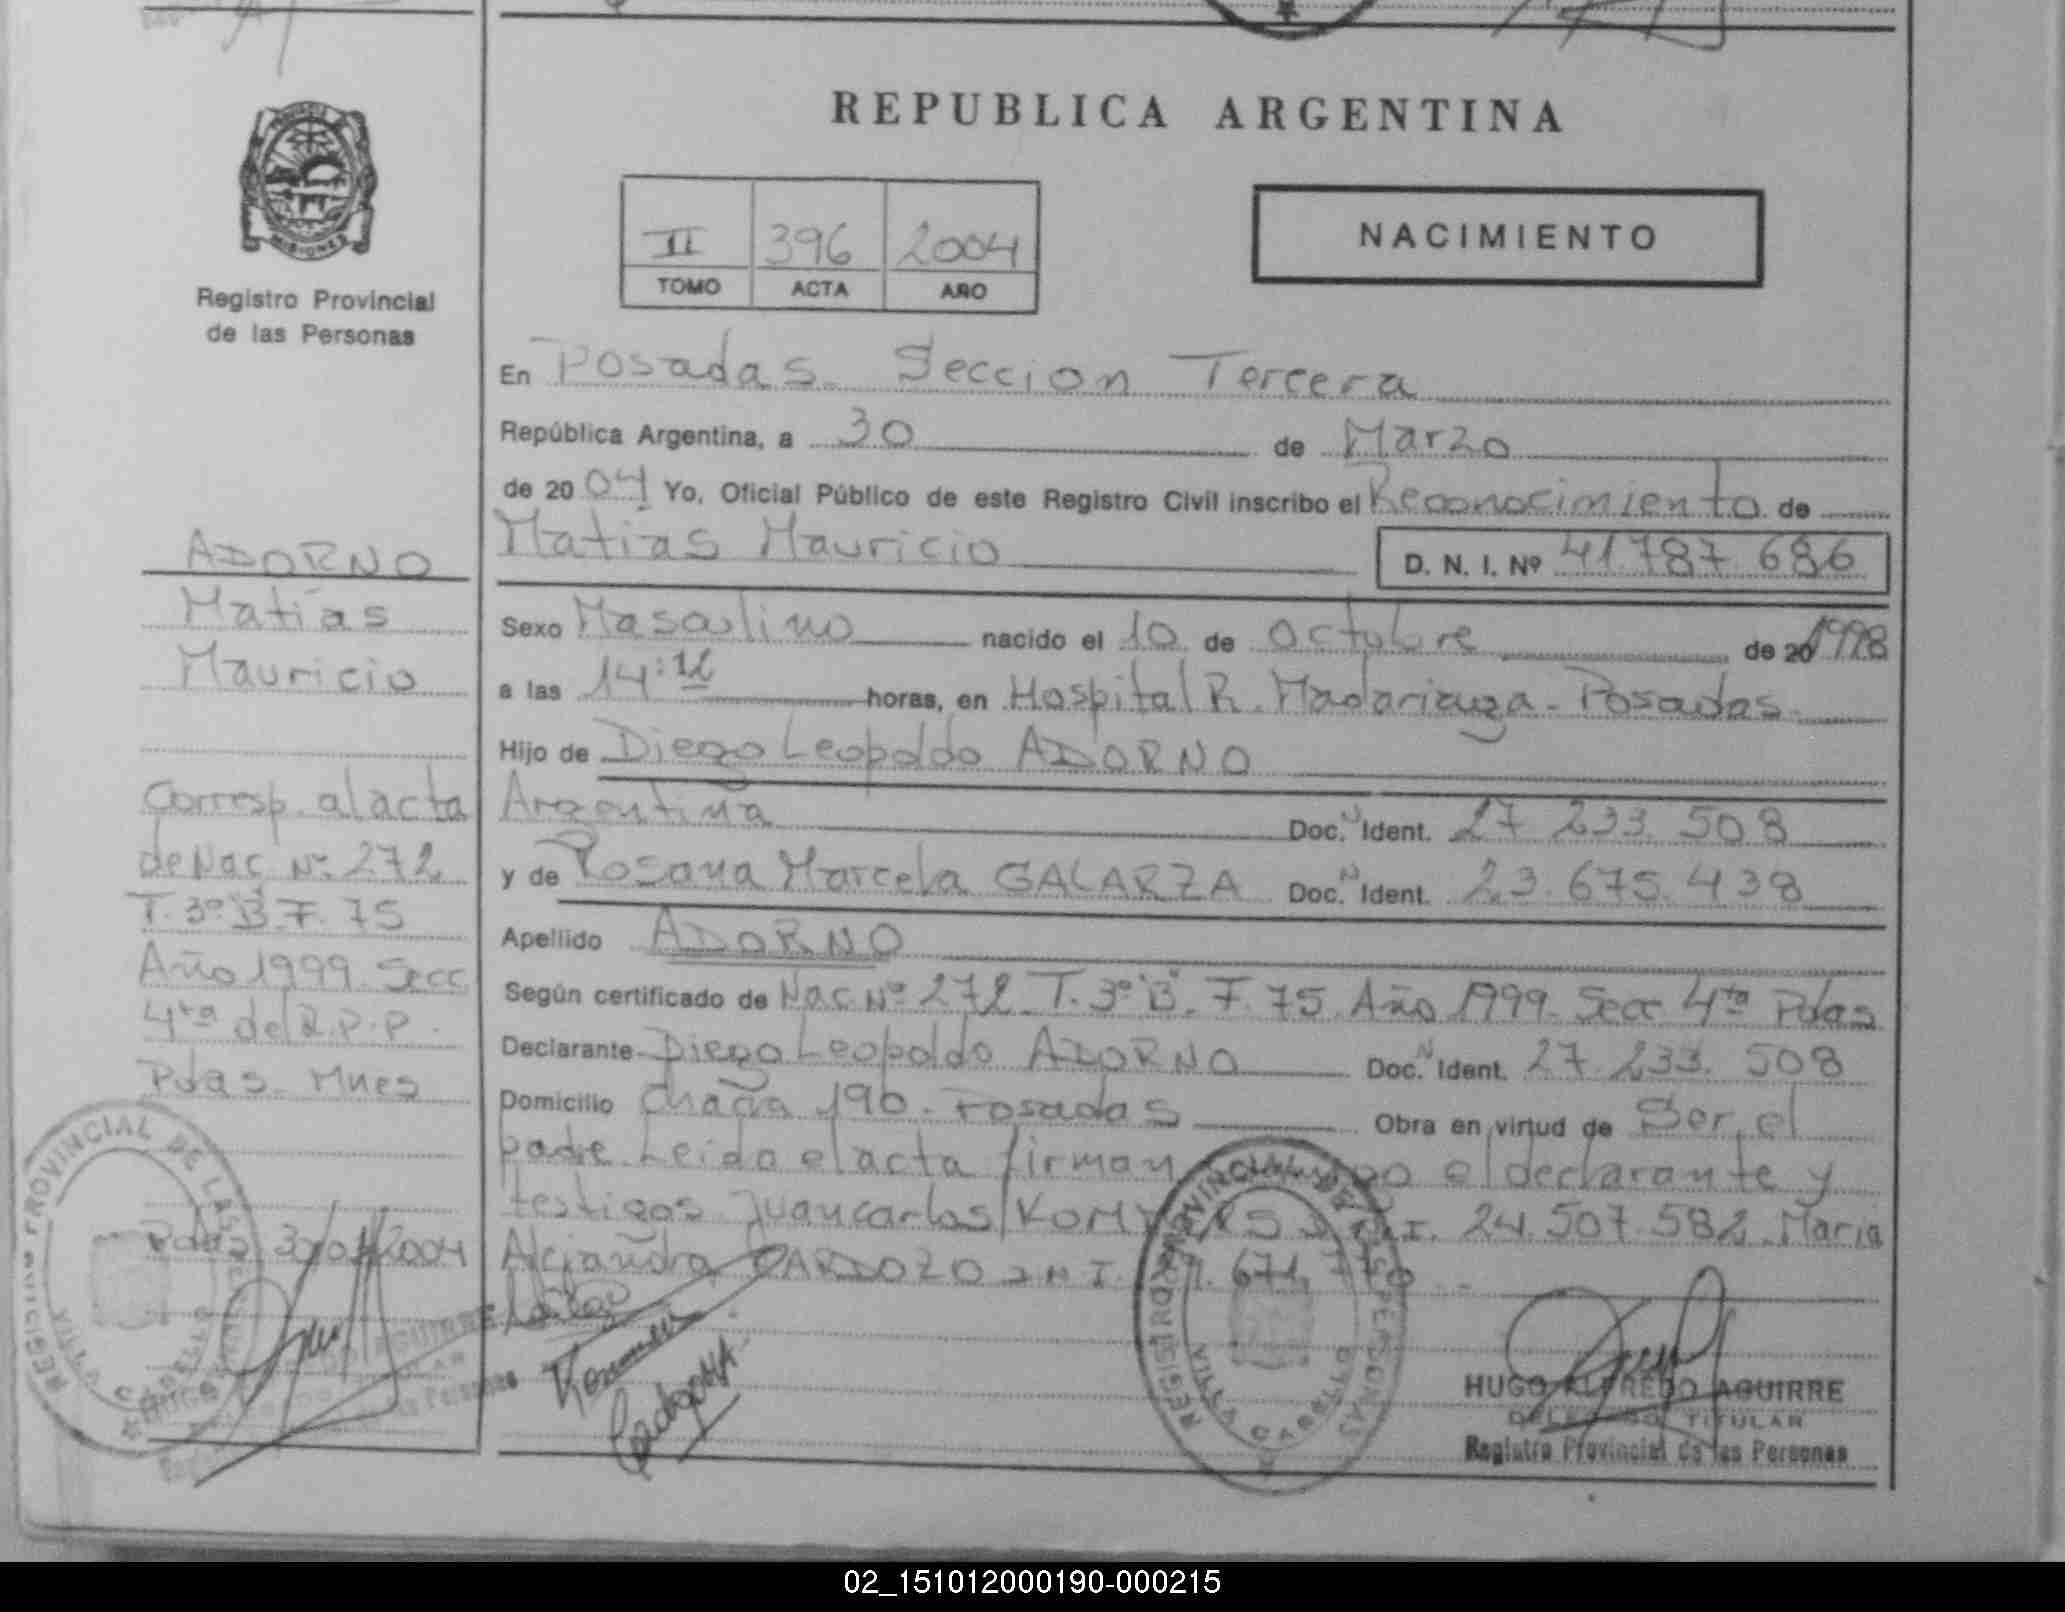 REPUBLICA ARGENTINA
PROVINCIA DE
MISIONES
Registro Provincial
de las Personas
II 396 2004
TOMO ACTA AÑO
NACIMIENTO
En Posadas. Seccion Tercera
República Argentina, a 30 de Marzo
de 2004 Yo, Oficial Público de este Registro Civil inscribo el Reconocimiento de
Matias Mauricio D. N. I. Nº 41.787.686
Sexo Masculino nacido el 10 de Octubre de 20 1998
a las 14:12 horas, en Hospital R. Madariaga - Posadas.
Hijo de Diego Leopoldo ADORNO
Argentina Doc. N Ident. 27.233.508
y de Rosana Marcela GALARZA Doc. N Ident. 23.675.438
Apellido ADORNO
Según certificado de Nac Nº 272 T. 3º "B". F. 75. Año 1999. Secc 4ta Pdas
Declarante Diego Leopoldo ADORNO Doc. N Ident. 27.233.508
Domicilio Chacra 190. Posadas Obra en virtud de Ser el
padre. Leida el acta firman el declarante y
testigos Juan Carlos D.N.I. 24.507.582. Maria
Alejandra CARDOZO D.N.I. 671
ADORNO
Matías
Mauricio
Corresp. al acta
de Nac Nº 272
T. 3º "B" F. 75
Año 1999. Secc
4ta del R.P.P.
Pdas. Mnes
Pdas 2004
REGISTRO PROVINCIAL DE LAS PERSONAS
VILLA CABELLO
REGISTRO PROVINCIAL DE LAS PERSONAS
VILLA CABELLO
HUGO ALFREDO AGUIRRE
DELEGADO TITULAR
Registro Provincial de las Personas
02_151012000190-000215